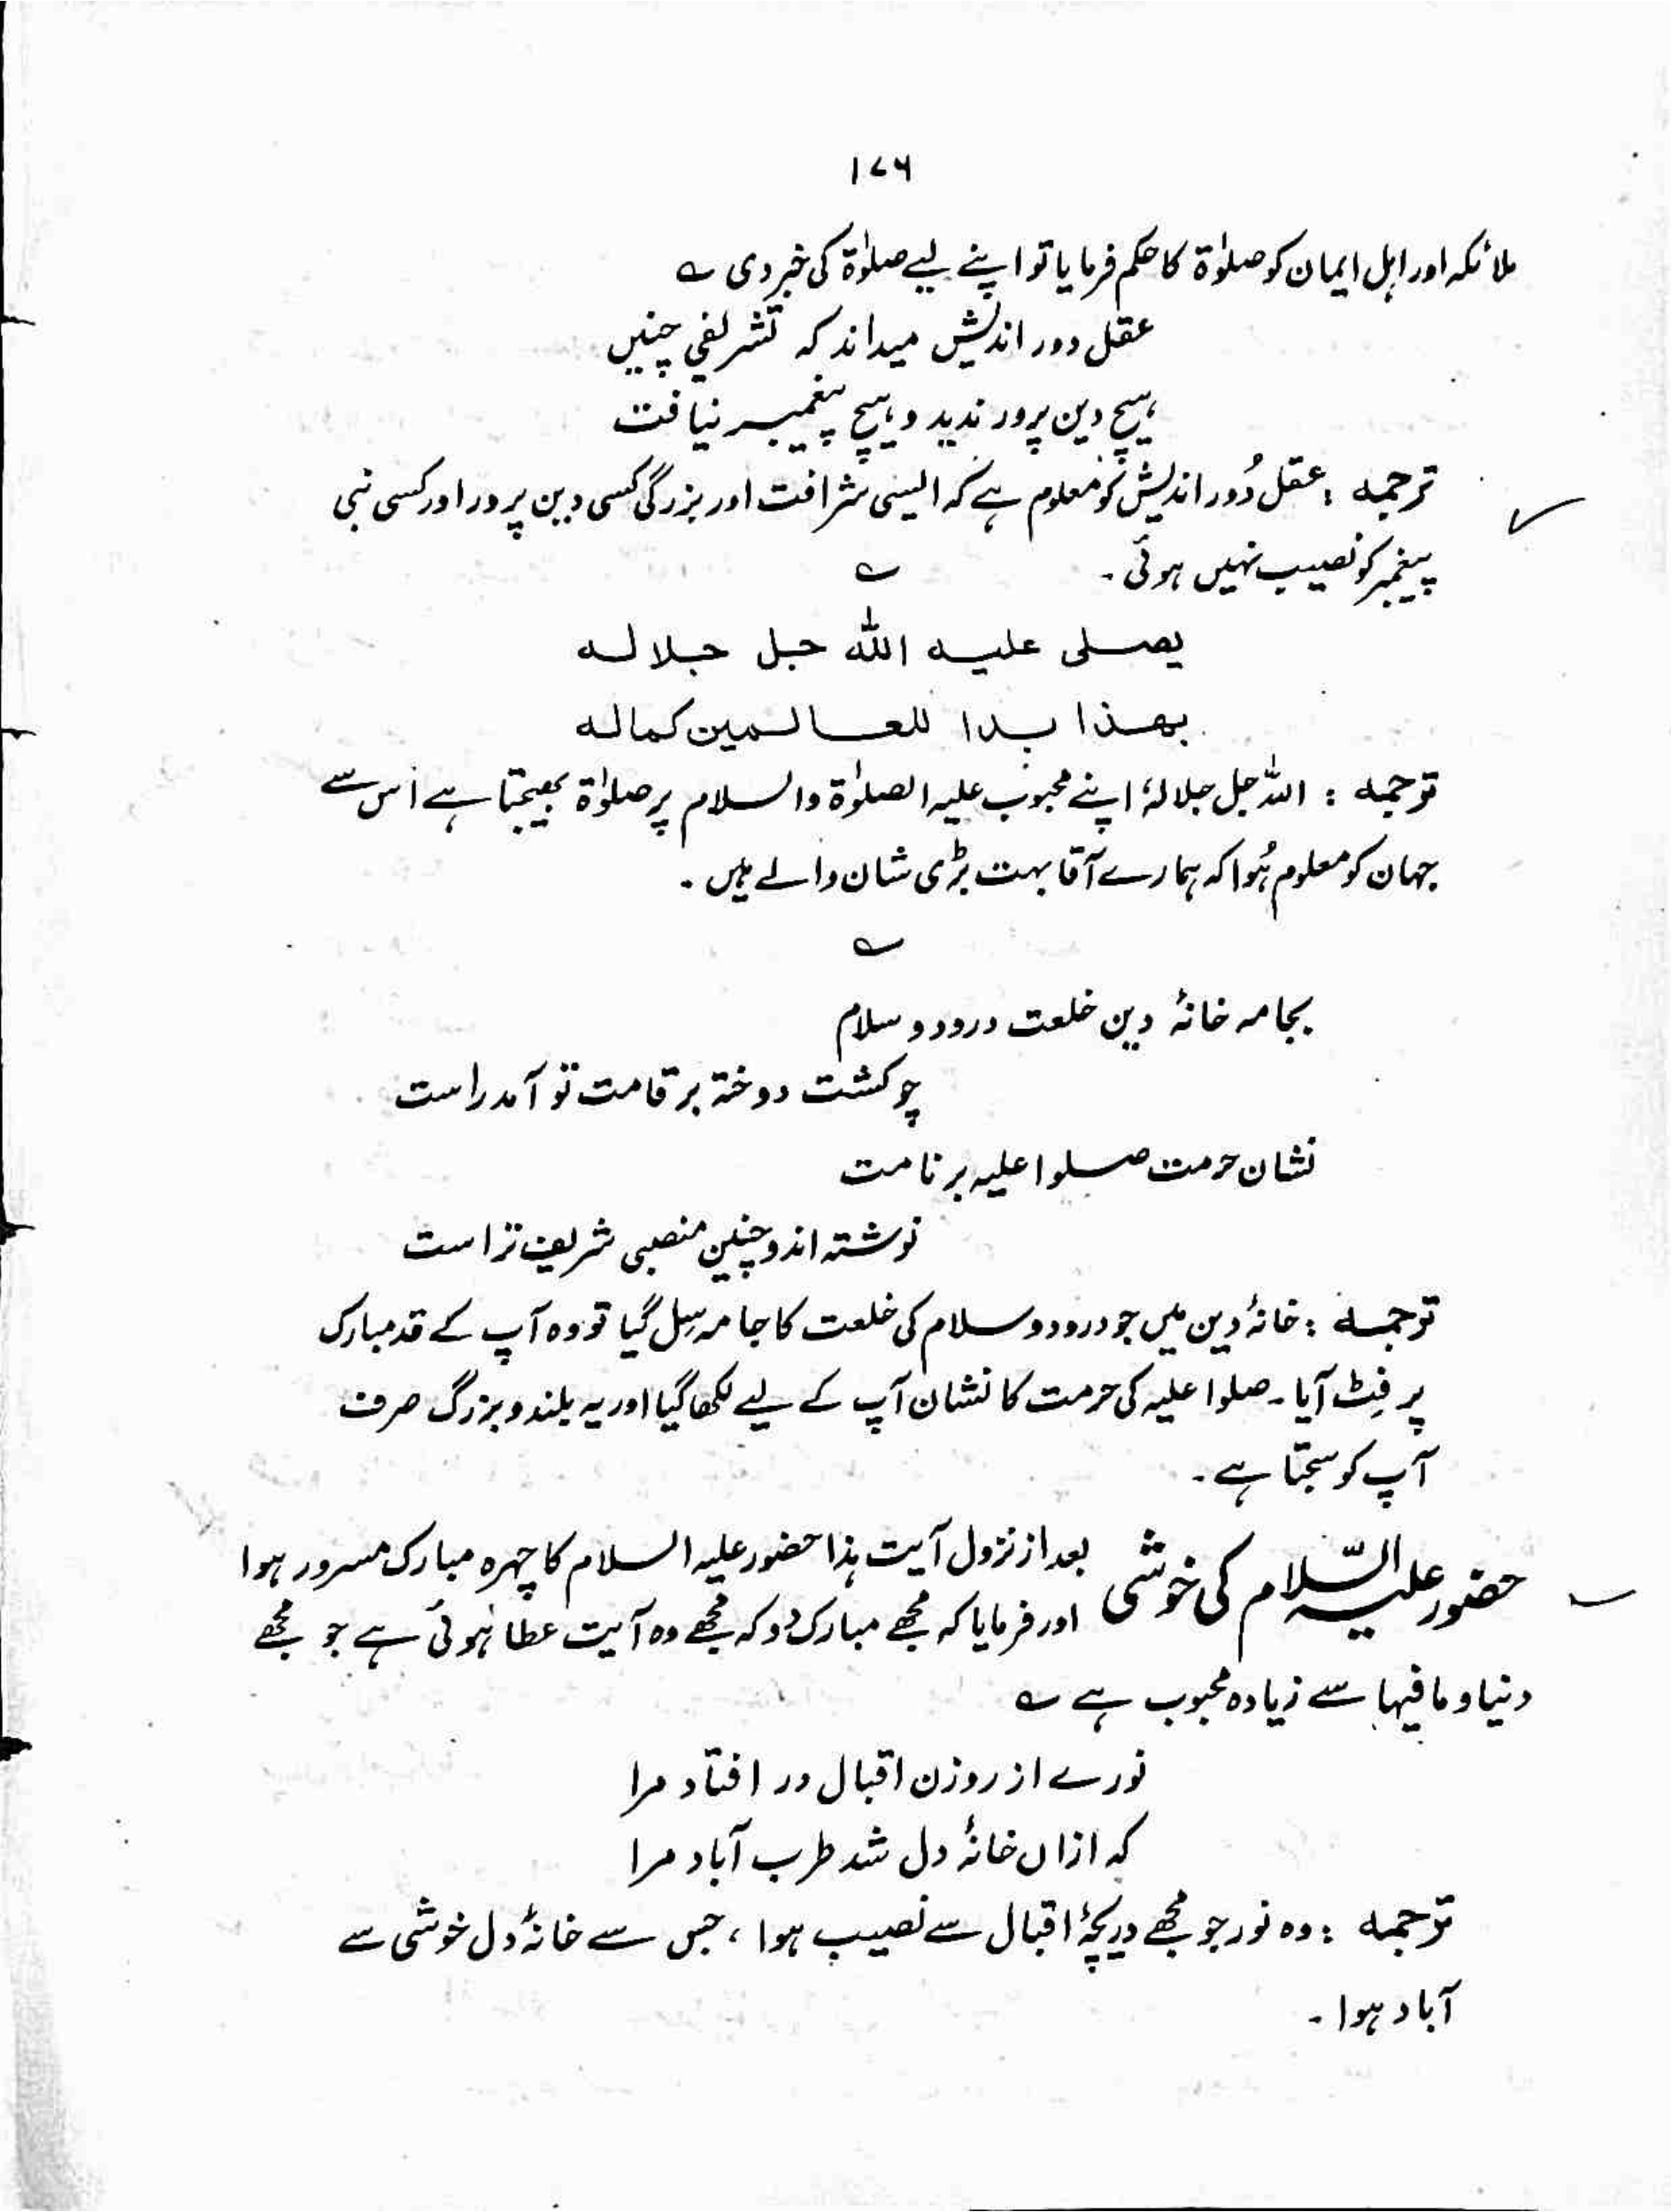 ۱۷۶
ملائکہ اور اہل ایمان کو صلوٰۃ کا حکم فرمایا تو اپنے لیے صلوٰۃ کی خبر دی ؎
عقل دور اندیش میداند کہ تشریفی چنیں
ہیچ دین پرور ندید و ہیچ پیغمبر نیافت
ترجمہ : عقل دُور اندیش کو معلوم ہے کہ ایسی شرافت اور بزرگی کسی دین پرور اور کسی نبی
پیغمبر کو نصیب نہیں ہوئی ۔ ؎
یصلی علیہ اللّٰہ جل جلالہ
بھذا بدا للعالمین کمالہ
ترجمہ : اللہ جل جلالہٗ اپنے محبوب علیہ الصلوٰۃ والسلام پر صلوٰۃ بھیجتا ہے اس سے
جہان کو معلوم ہُوا کہ ہمارے آقا بہت بڑی شان والے ہیں ۔
؎
بجامہ خانۂ دین خلعت درود و سلام
چو گشت دوختہ بر قامت تو آمد راست
نشان حرمت صلوا علیہ بر نامت
نوشتہ اند و چنین منصبی شریف تراست
ترجمہ : خانۂ دین میں جو درود و سلام کی خلعت کا جامہ سِل گیا تو وہ آپ کے قد مبارک
پر فِٹ آیا ۔ صلوا علیہ کی حرمت کا نشان آپ کے لیے لکھا گیا اور یہ بلند و بزرگ صرف
آپ کو سجتا ہے ۔
حضور علیہ السّلام کی خوشی بعد از نزول آیت ہذا حضور علیہ السلام کا چہرہ مبارک مسرور ہوا
اور فرمایا کہ مجھے مبارک دو کہ مجھے وہ آیت عطا ہُوئی ہے جو مجھے
دنیا و مافیہا سے زیادہ محبوب ہے ؎
نورے از روزن اقبال در افتاد مرا
کہ ازاں خانۂ دل شد طرب آباد مرا
ترجمہ : وہ نور جو مجھے دریچۂ اقبال سے نصیب ہوا ، جس سے خانۂ دل خوشی سے
آباد ہوا ۔